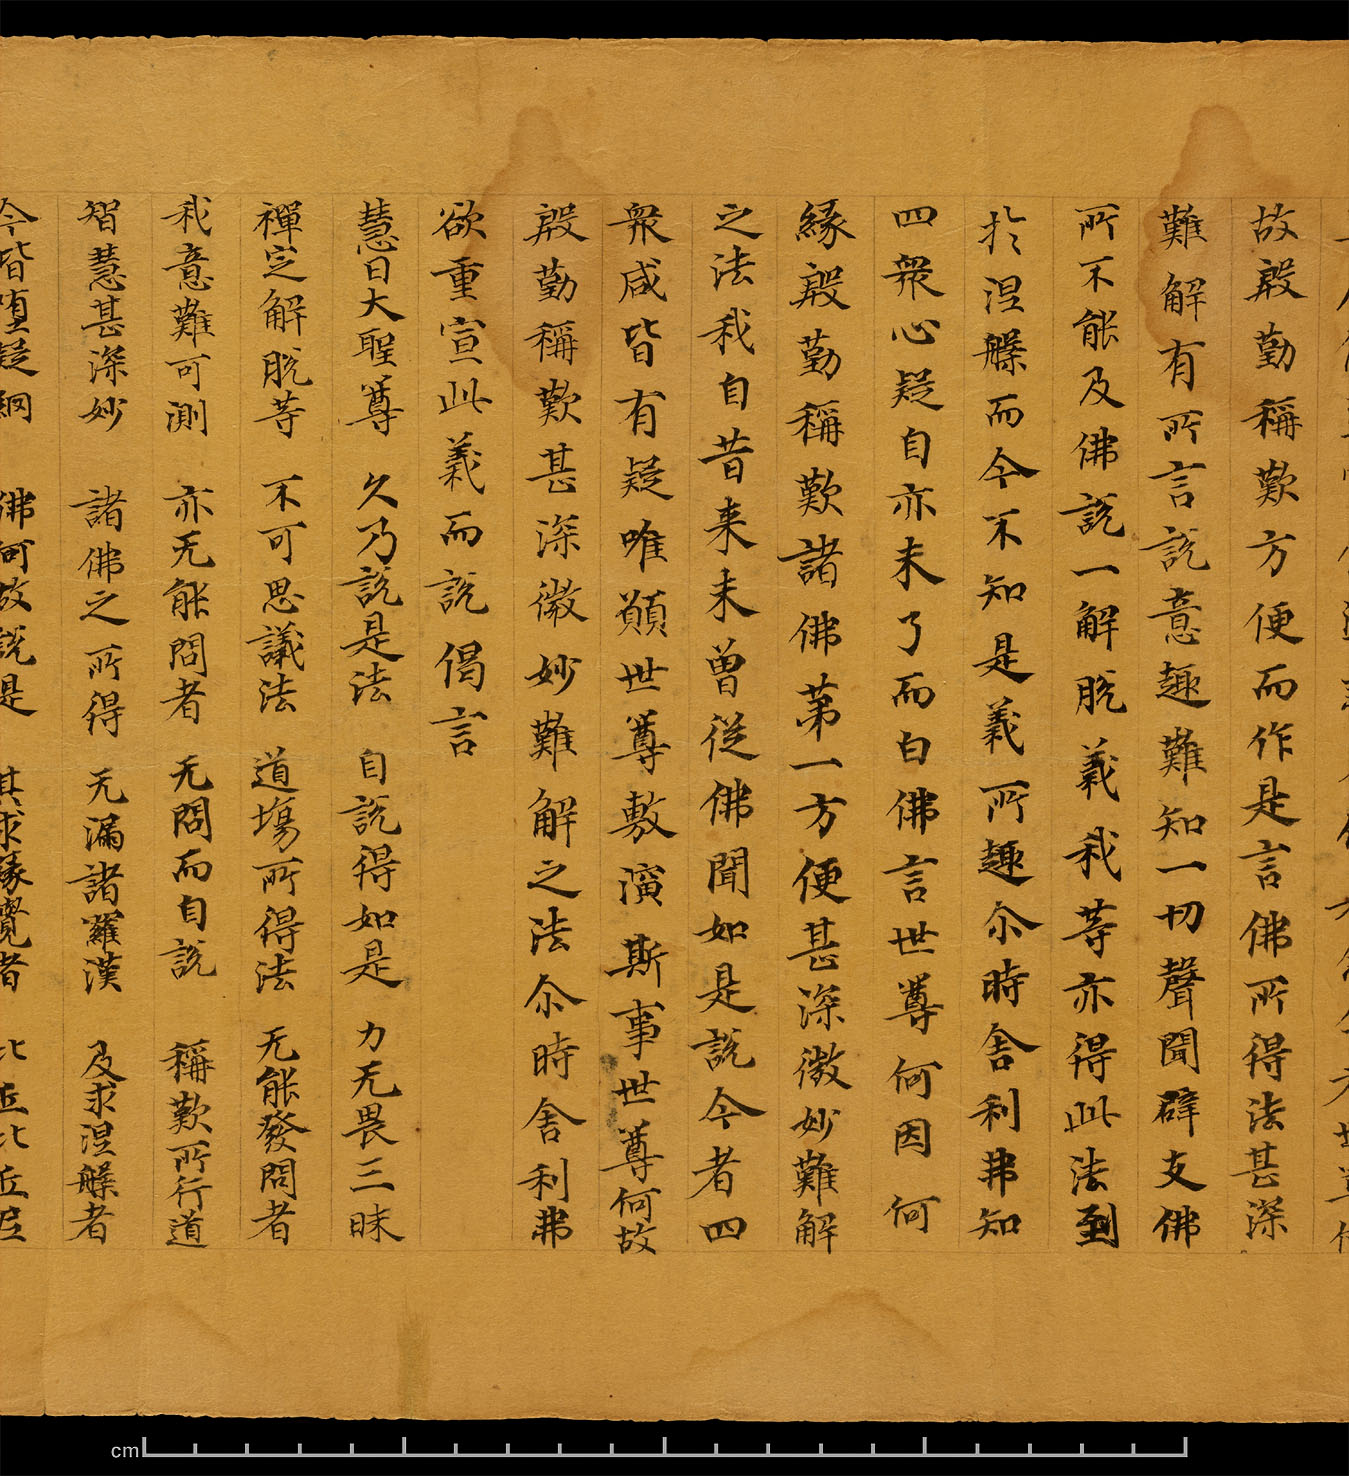 故殷勤稱歎方便而作是言佛所得法甚深
難解有所言說意趣難知一切聲聞辟支佛
所不能及佛說一解脫義我等亦得此法到
於涅槃而今不知是義所趣尒時舍利弗知
四衆心疑自亦未了而白佛言世尊何因何
緣殷勤稱歎諸佛第一方便甚深微妙難解
之法我自昔来未曾從佛聞如是說今者四
衆咸皆有疑唯願世尊敷演斯事世尊何故
殷勤稱歎甚深微妙難解之法尒時舍利弗
欲重宣此義而說偈言
慧日大聖尊 久乃說是法 自說得如是 力无畏三昧
禪定解脫等 不可思議法 道場所得法 无能發問者
我意難可測 亦无能問者 无問而自說 稱歎所行道
智慧甚深妙 諸佛之所得 无漏諸羅漢 及求涅槃者
今皆墮疑網 佛何故說是 其求緣覺者 比丘比丘尼
cm